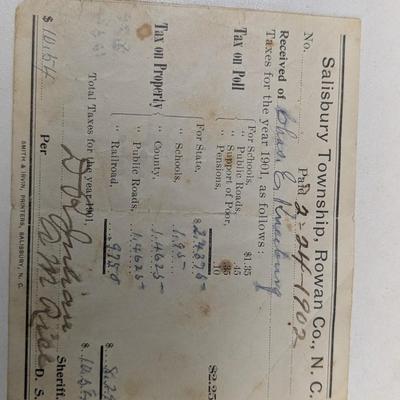 Salisbury Township, Rowan Co., N. C.
No. Paid 2-24-1902
Received of Chas. E.
Taxes for the year 1901, as follows:
Tax on Poll
For Schools, $1.35
" Public Roads, .45
" Support of Poor, .35
" Pensions, .10
$2.25
Tax on Property
For State, $2.4375
" Schools, 1.95
" County, 1.4625
" Public Roads, 1.4625
" Railroad, .9750
$8.29
Total Taxes for the year 1901, $10.54
D. R. Julian Sheriff.
Per D. S.
$10.54
SMITH & IRVIN, PRINTERS, SALISBURY, N. C.